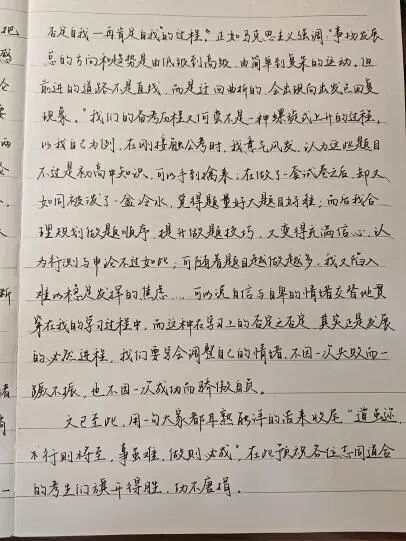 否定自我—再肯定自我"的过程。"正如马克思主义强调"事物发展
总的方向和趋势是由低级到高级、由简单到复杂的运动,但
前进的道路不是直线,而是迂回曲折的,会出现向出发点回复
现象。"我们的备考历程又何尝不是一种螺旋式上升的过程,
以我自己为例,在刚接触公考时,我意气风发,认为这些题目
不过是初高中知识,可以手到擒来;在做了一套试卷之后,却又
如同被泼了一盆冷水,觉得题量好大题目好难;而后我合
理规划做题顺序,提升做题技巧,又变得充满信心,认
为行测与申论不过如此;可随着题目越做越多,我又陷入
难以稳定发挥的焦虑…,可以说自信与自卑的情绪交替地贯
穿在我的学习过程中,而这种在学习上的否定之否定,其实正是发展
的必然进程,我们要学会调整自己的情绪,不因一次失败而一
蹶不振,也不因一次成功而骄傲自负。
文已至此,用一句大家都耳熟能详的话来收尾"道虽迩,
行则将至,事虽难,做则必成",在此预祝各位志同道合
的考生们旗开得胜,功不唐捐。
把
感
论
要
两
断
者
一